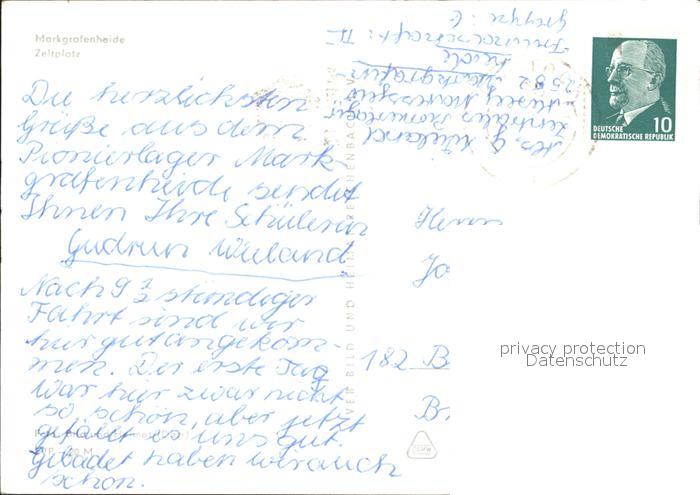 Markgrafenheide
Zeltplatz
Die herzlichsten
Grüße aus dem
Pionierlager Mark-
grafenheide sendet
Ihnen Ihre Schülerin
Gudrun Wieland
Nach 9 1/2 stündiger
Fahrt sind wir
hier gut angekom-
men. Der erste Tag
war hier zwar nicht
so schön, aber jetzt
gefällt es uns gut.
Gebadet haben wir auch
schon.
Abs. G. Wieland
Zentrales Pionierlager
2582 Markgrafen-
heide
Freundschaft: II
Gruppe: 6
DEUTSCHE
DEMOKRATISCHE REPUBLIK
10
Herrn
Jo
182 B
B
BILD UND HEIM
privacy protection
Datenschutz